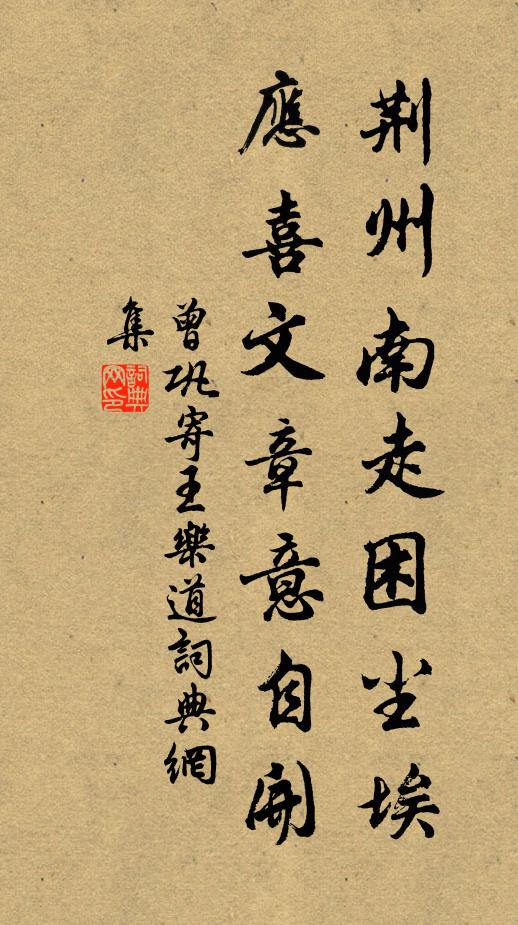 荆州南走困尘埃
應喜文章意自開
曾巩寄王樂道詞典網
集
詞典網印